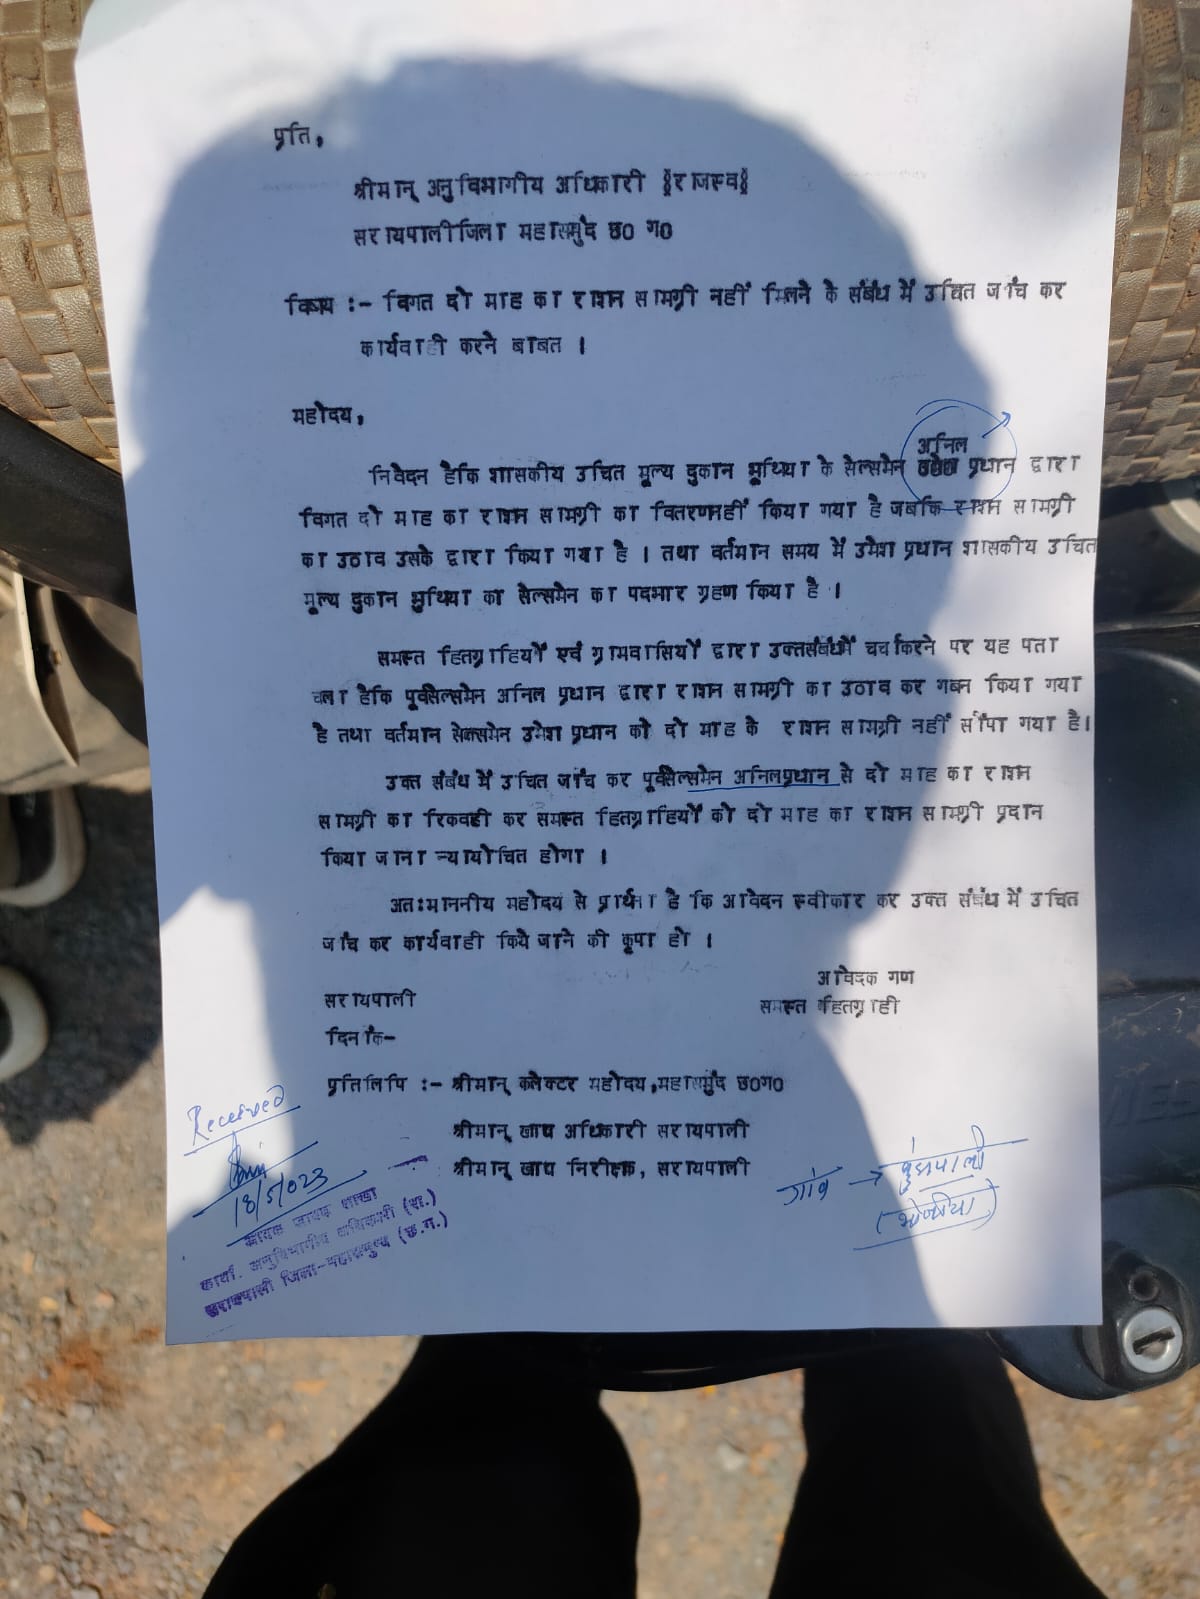 प्रति,
श्रीमान् अनुविभागीय अधिकारी {राजस्व}
सरायपालीजिला महासमुंद छ0 ग0
विषय :- विगत दो माह का राशन सामग्री नहीं मिलने के संबंध में उचित जांच कर
कार्यवाही करने बाबत ।
महोदय,
अनिल
निवेदन हैकि शासकीय उचित मूल्य दुकान भुथिया के सेल्समेन प्रधान द्वारा
विगत दो माह का राशन सामग्री का वितरणनहीं किया गया है जबकि राशन सामग्री
का उठाव उसके द्वारा किया गया है । तथा वर्तमान समय में उमेश प्रधान शासकीय उचित
मूल्य दुकान भुथिया का सेल्समेन का पदभार ग्रहण किया है ।
समस्त हितग्राहियों एवं ग्रामवासियों द्वारा उक्तसंबंधमें चर्चाकरने पर यह पता
चला हैकि पूर्वसेल्समेन अनिल प्रधान द्वारा राशन सामग्री का उठाव कर गबन किया गया
है तथा वर्तमान सेल्समेन उमेश प्रधान को दो माह के राशन सामग्री नहीं सौंपा गया है।
उक्त संबंध में उचित जांच कर पूर्वसेल्समेन अनिलप्रधान से दो माह का राशन
सामग्री का रिकवही कर समस्त हितग्राहियों को दो माह का राशन सामग्री प्रदान
किया जाना न्यायोचित होगा ।
अतःमाननीय महोदय से प्रार्थना है कि आवेदन स्वीकार कर उक्त संबंध में उचित
जांच कर कार्यवाही किये जाने की कृपा हो ।
आवेदक गण
सरायपाली
समस्त हितग्राही
दिनांक-
प्रतिलिपि :- श्रीमान् कलेक्टर महोदय,महासमुंद छ0ग0
श्रीमान् खाद्य अधिकारी सरायपाली
श्रीमान् खाद्य निरीक्षक, सरायपाली
Received
18/5/023
गांव →
आवक जावक शाखा
कार्या. अनुविभागीय अधिकारी (रा.)
सरायपाली जिला-महासमुन्द (छ.ग.)